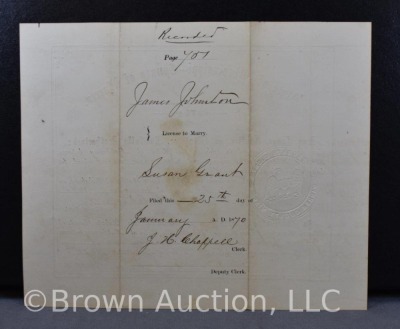 Recorded
Page 701
James Johnston
} License to Marry.
Susan Grant
Filed this 25th day of
January A D 1870
J H Chappell
Clerk
Deputy Clerk.
© Brown Auction, LLC